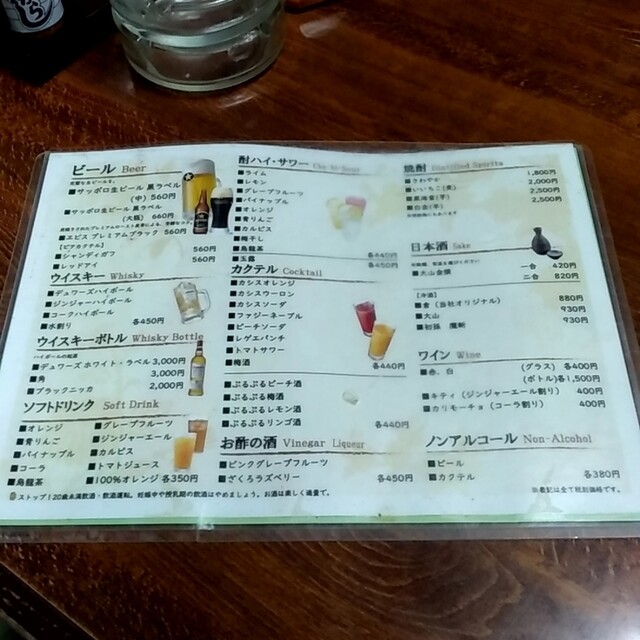 ビール Beer
■サッポロ生ビール 黒ラベル
(中) 560円
■サッポロ生ビール 黒ラベル
(大瓶) 660円
■エビス プレミアムブラック 560円
【ビアカクテル】
■シャンディガフ 560円
■レッドアイ 560円
ウイスキー Whisky
■デュワーズハイボール
■ジンジャーハイボール
■コークハイボール
■水割り 各450円
ウイスキーボトル Whisky Bottle
■デュワーズ ホワイト・ラベル 3,000円
■角 3,000円
■ブラックニッカ 2,000円
ソフトドリンク Soft Drink
■オレンジ ■グレープフルーツ
■青りんご ■ジンジャーエール
■パイナップル ■カルピス
■コーラ ■トマトジュース
■烏龍茶 ■100%オレンジ 各350円
ストップ!20歳未満飲酒・飲酒運転。妊娠中や授乳期の飲酒はやめましょう。お酒は楽しく適量で。
酎ハイ・サワー
■ライム
■レモン
■グレープフルーツ
■パイナップル
■オレンジ
■青りんご
■カルピス
■梅干し
■烏龍茶 各440円
■玉露 各450円
カクテル Cocktail
■カシスオレンジ
■カシスウーロン
■カシスソーダ
■ファジーネーブル
■ピーチソーダ
■レゲエパンチ
■トマトサワー
■梅酒 各440円
■ぷるぷるピーチ酒
■ぷるぷる梅酒
■ぷるぷるレモン酒
■ぷるぷるリンゴ酒 各440円
お酢の酒 Vinegar Liqueur
■ピンクグレープフルーツ
■ざくろラズベリー 各450円
焼酎 Distilled Spirits
■さわやか 1,800円
■いいちこ(麦) 2,000円
■黒海音(芋) 2,500円
2,500円
日本酒 Sake
■大山金撰 一合 420円
二合 820円
【冷酒】
■倉(当社オリジナル) 880円
■大山 930円
■初孫 魔斬 930円
ワイン Wine
■赤、白 (グラス) 各400円
(ボトル)各1,500円
■キティ(ジンジャーエール割り) 400円
■カリモーチョ(コーラ割り) 400円
ノンアルコール Non-Alcohol
■ビール
■カクテル 各380円
※表記は全て税別価格です。